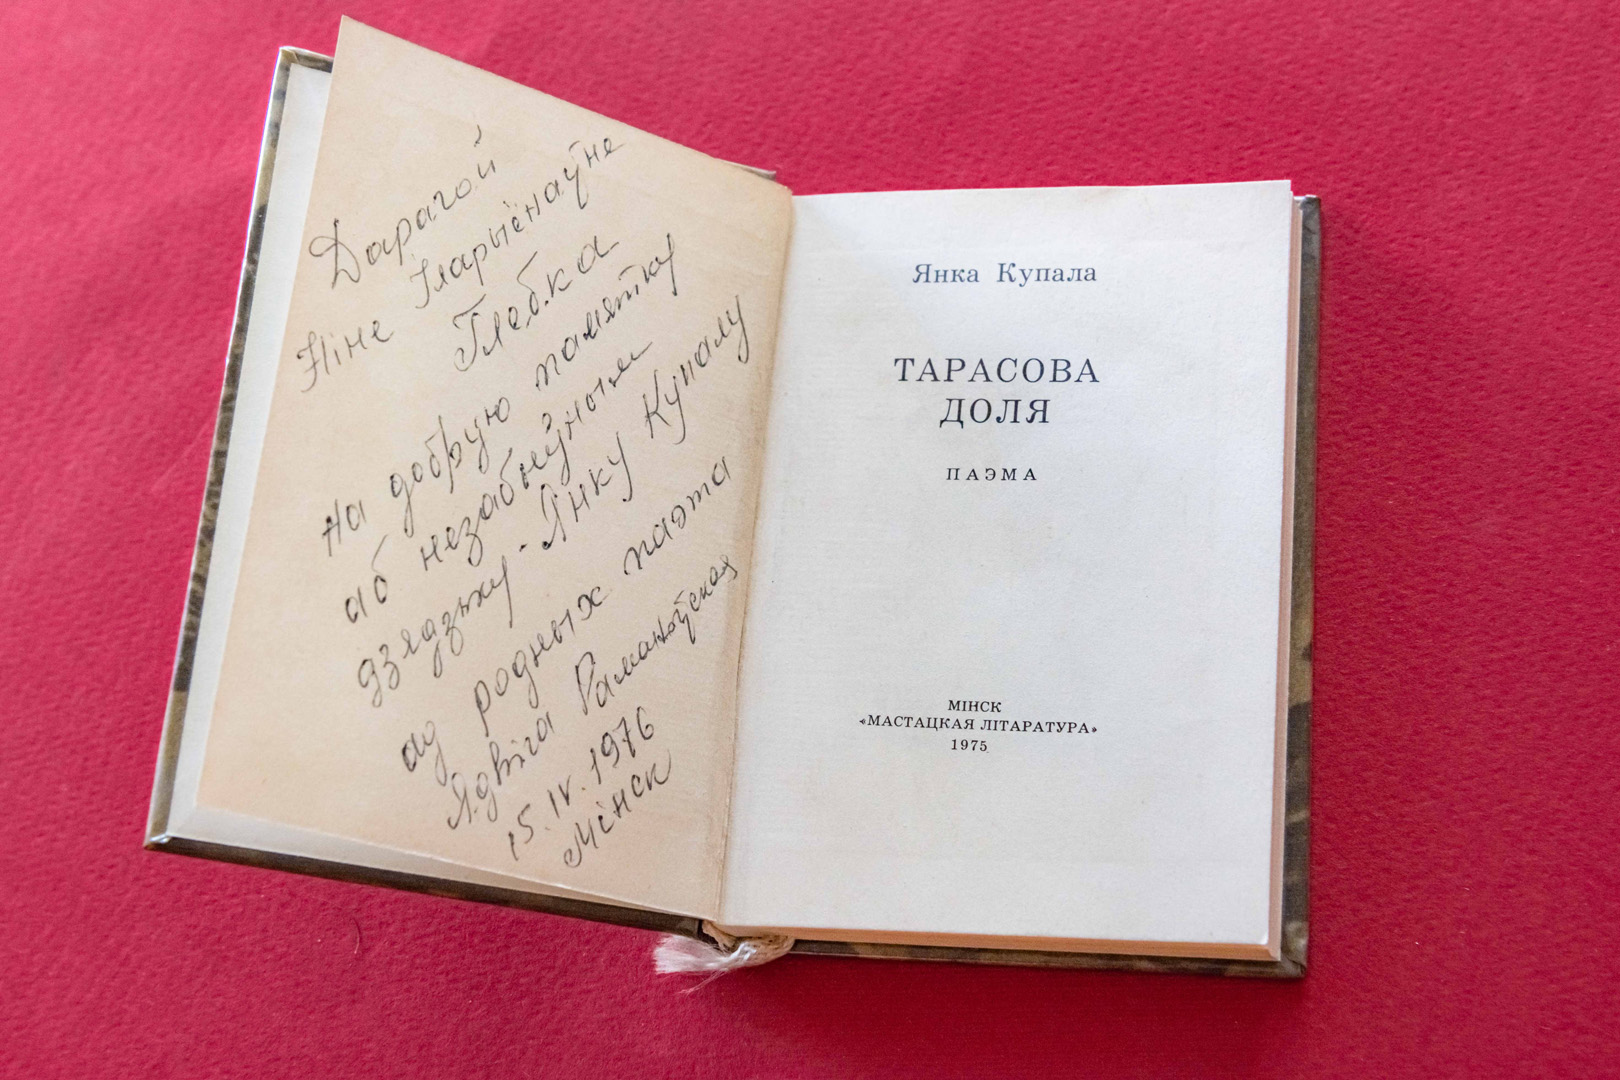 Дарагой
Ніне Іларыёнаўне
Глебка
на добрую памятку
аб незабыўным
дзядзьку - Янку Купалу
ад родных паэта
Ядвіга Раманоўская
15.IV.1976
Мінск
Янка Купала
ТАРАСОВА
ДОЛЯ
ПАЭМА
МІНСК
«МАСТАЦКАЯ ЛІТАРАТУРА»
1975